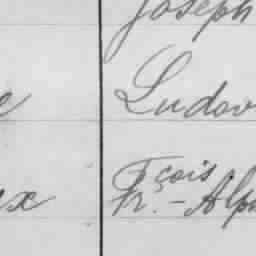 Joseph
e Ludov
ux Fçois
h.-Alp